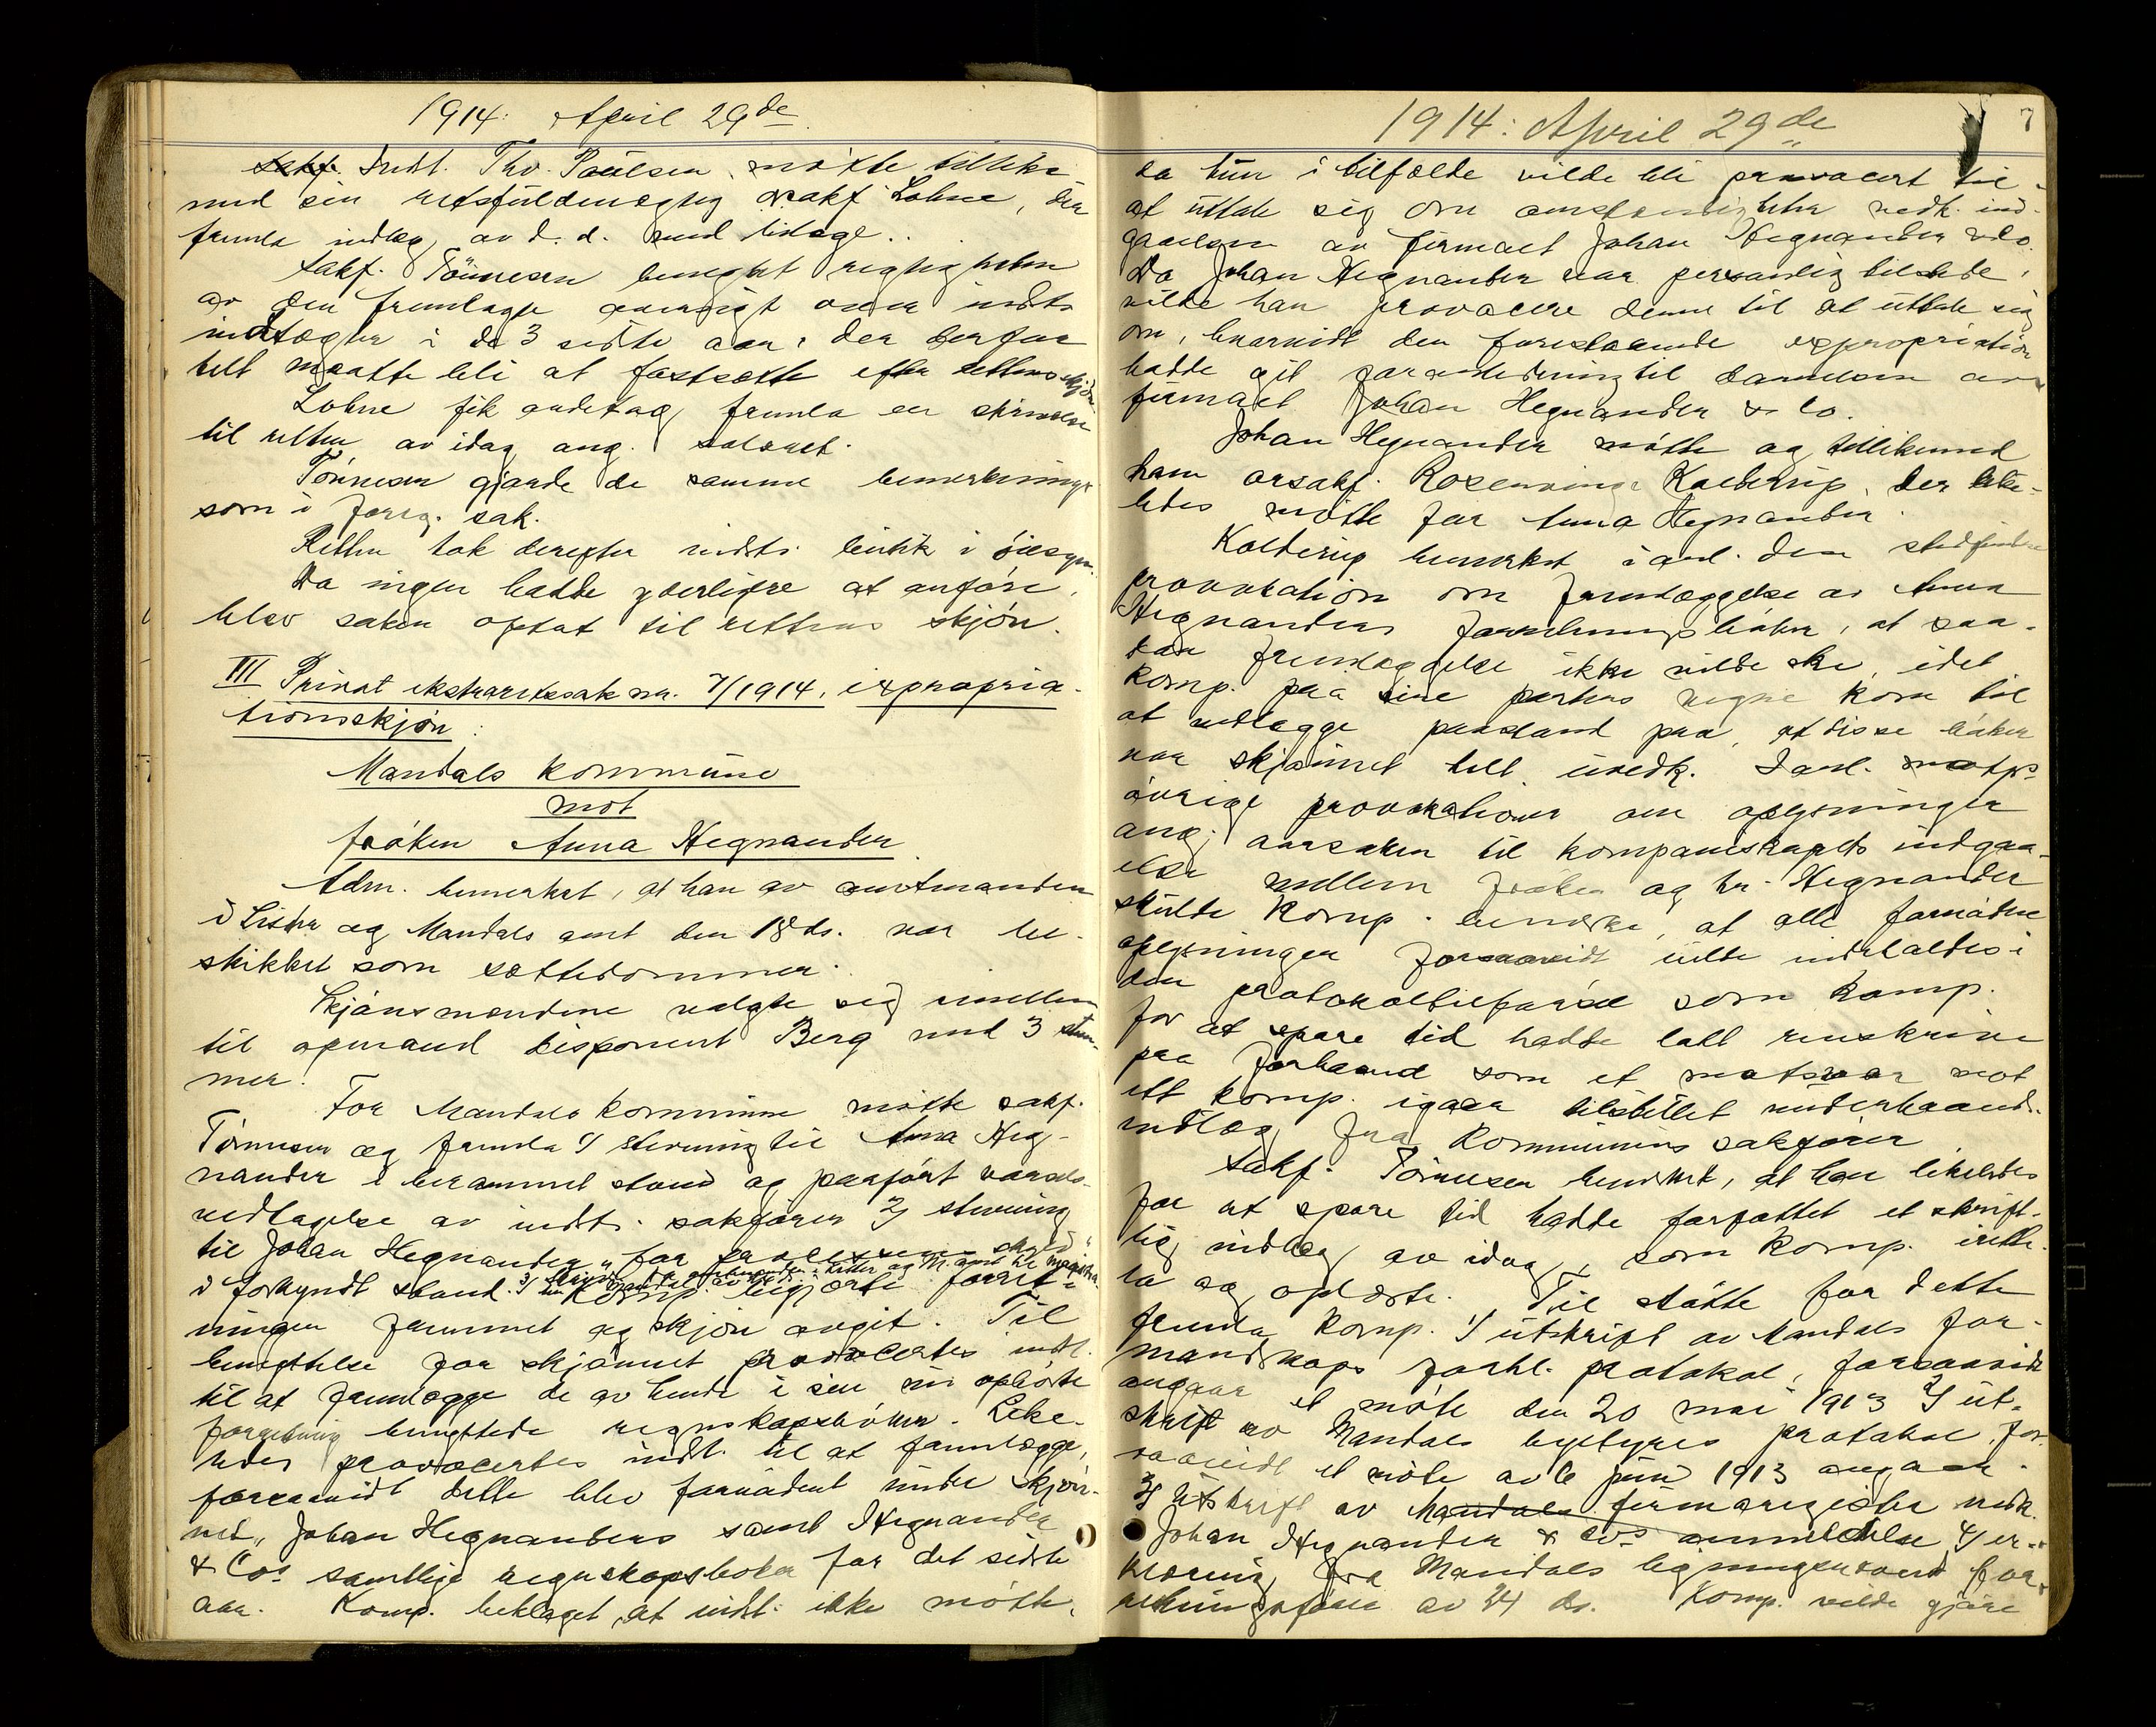 1914: April 29de
Indst. Thv. Paulsen møtte tillike
med sin retsfuldmægtig orsakf. Lohne, der
fremla indlæg av d. d. med bilage.
Sakf. Tönnesen benegtet rigtigheten
av den fremlagte oversigt over indsts
indtægter i de 3 sidste aar, der derfor
helt maatte bli at fastsætte efter rettens skjøn
Lohne fik andetag fremla en skrivelse
til retten av idag ang. salæret.
Tönnesen gjorde de samme bemerkninger
som i foreg. sak.
Retten tok derefter indsts. butik i øiesyn.
Da ingen hadde yderligere at anføre,
blev saken optat til rettens skjøn.
III Privat ekstraretssak nr. 7/1914, expropria-
tionsskjøn:
Mandals kommune
mot
frøken Anna Hegnander
Adm. bemerket, at han av amtmanden
i Lister og Mandals amt den 18 ds. var be-
skikket som sættedommer.
Skjønsmændene valgte sig imellem
til opmand disponent Berg med 3 stem-
mer.
For Mandals kommune møtte sakf.
Tönnesen og fremla 1/ stevning til Anna Heg-
nander i berammet stand og paaført varsels-
vedtagelse av indsts. sakfører 2/ stevning
til Johan Hegnander
i forkyndt stand. 3/ Komp. begjærte forret-
ningen fremmet og skjøn avgit. Til
benyttelse for skjønnet provocertes indst.
til at fremlægge de av hende i sin nu ophørte
forretning benyttede regnskapsbøker. Like-
ledes provocertes indst. til at fremlægge,
forsaavidt dette blev fornødent under skjøn-
net, Johan Hegnanders samt Hegnander
& Cos samtlige regnskapsbøker for det sidste
aar. Komp. beklaget, at indst. ikke møtte,
1914: April 29de
7
da hun i tilfælde vilde bli provocert til
at uttale sig om omstændigheter vedk. ind-
gaaelsen av firmaet Johan Hegnander & Co.
Da Johan Hegnander var personlig tilstede,
vilde han provocere denne til at uttale sig
om, hvorvidt den forestaaende expropriation
hadde git foranledning til dannelsen av
firmaet Johan Hegnander & Co.
Johan Hegnander møtte og tillikemed
ham orsakf. Rosenvinge Kolderup, der like-
ledes møtte for Anna Hegnander.
Kolderup bemerket i anl. den stedfundne
provokation om fremlæggelse av Anna
Hegnanders forretningsbøker, at saa-
dan fremlæggelse ikke vilde ske, idet
komp. paa sine parters vegne kom til
at nedlægge paastand paa, at disse bøker
var skjønnet helt uvedk. I anl. motps
øvrige provokationer om oplysninger
ang. aarsaken til kompaniskapets indgaa-
else mellem frøken og hr. Hegnander
skulde komp. bemerke, at alle fornødne
oplysninger forsaavidt vilde indeholdes i
den protokoltilførsel som komp.
for at spare tid hadde latt renskrive
paa forhaand som et motsvar mot
ett komp. igaar tilstillet underhaands-
indlæg fra kommunens sakfører.
Sakf. Tönnesen bemerket, at han likeledes
for at spare tid hadde forfattet et skrift-
lig indlæg av idag, som komp. irette-
la og oplæste. Til støtte for dette
fremla komp. 1/ utskrift av Mandals for-
mandskaps forhl. protokol, forsaavidt
angaar et møte den 20 mai 1913 2/ ut-
skrift av Mandals bystyres protokol, for-
saavidt et møte av 6 juni 1913 angaar.
3/ Utskrift av Mandals firmaregister vedk.
Johan Hegnander & Cos anmeldelse 4/ er-
klæring fra Mandals ligningsraads for-
retningsfører av 24 ds. Komp. vilde gjøre